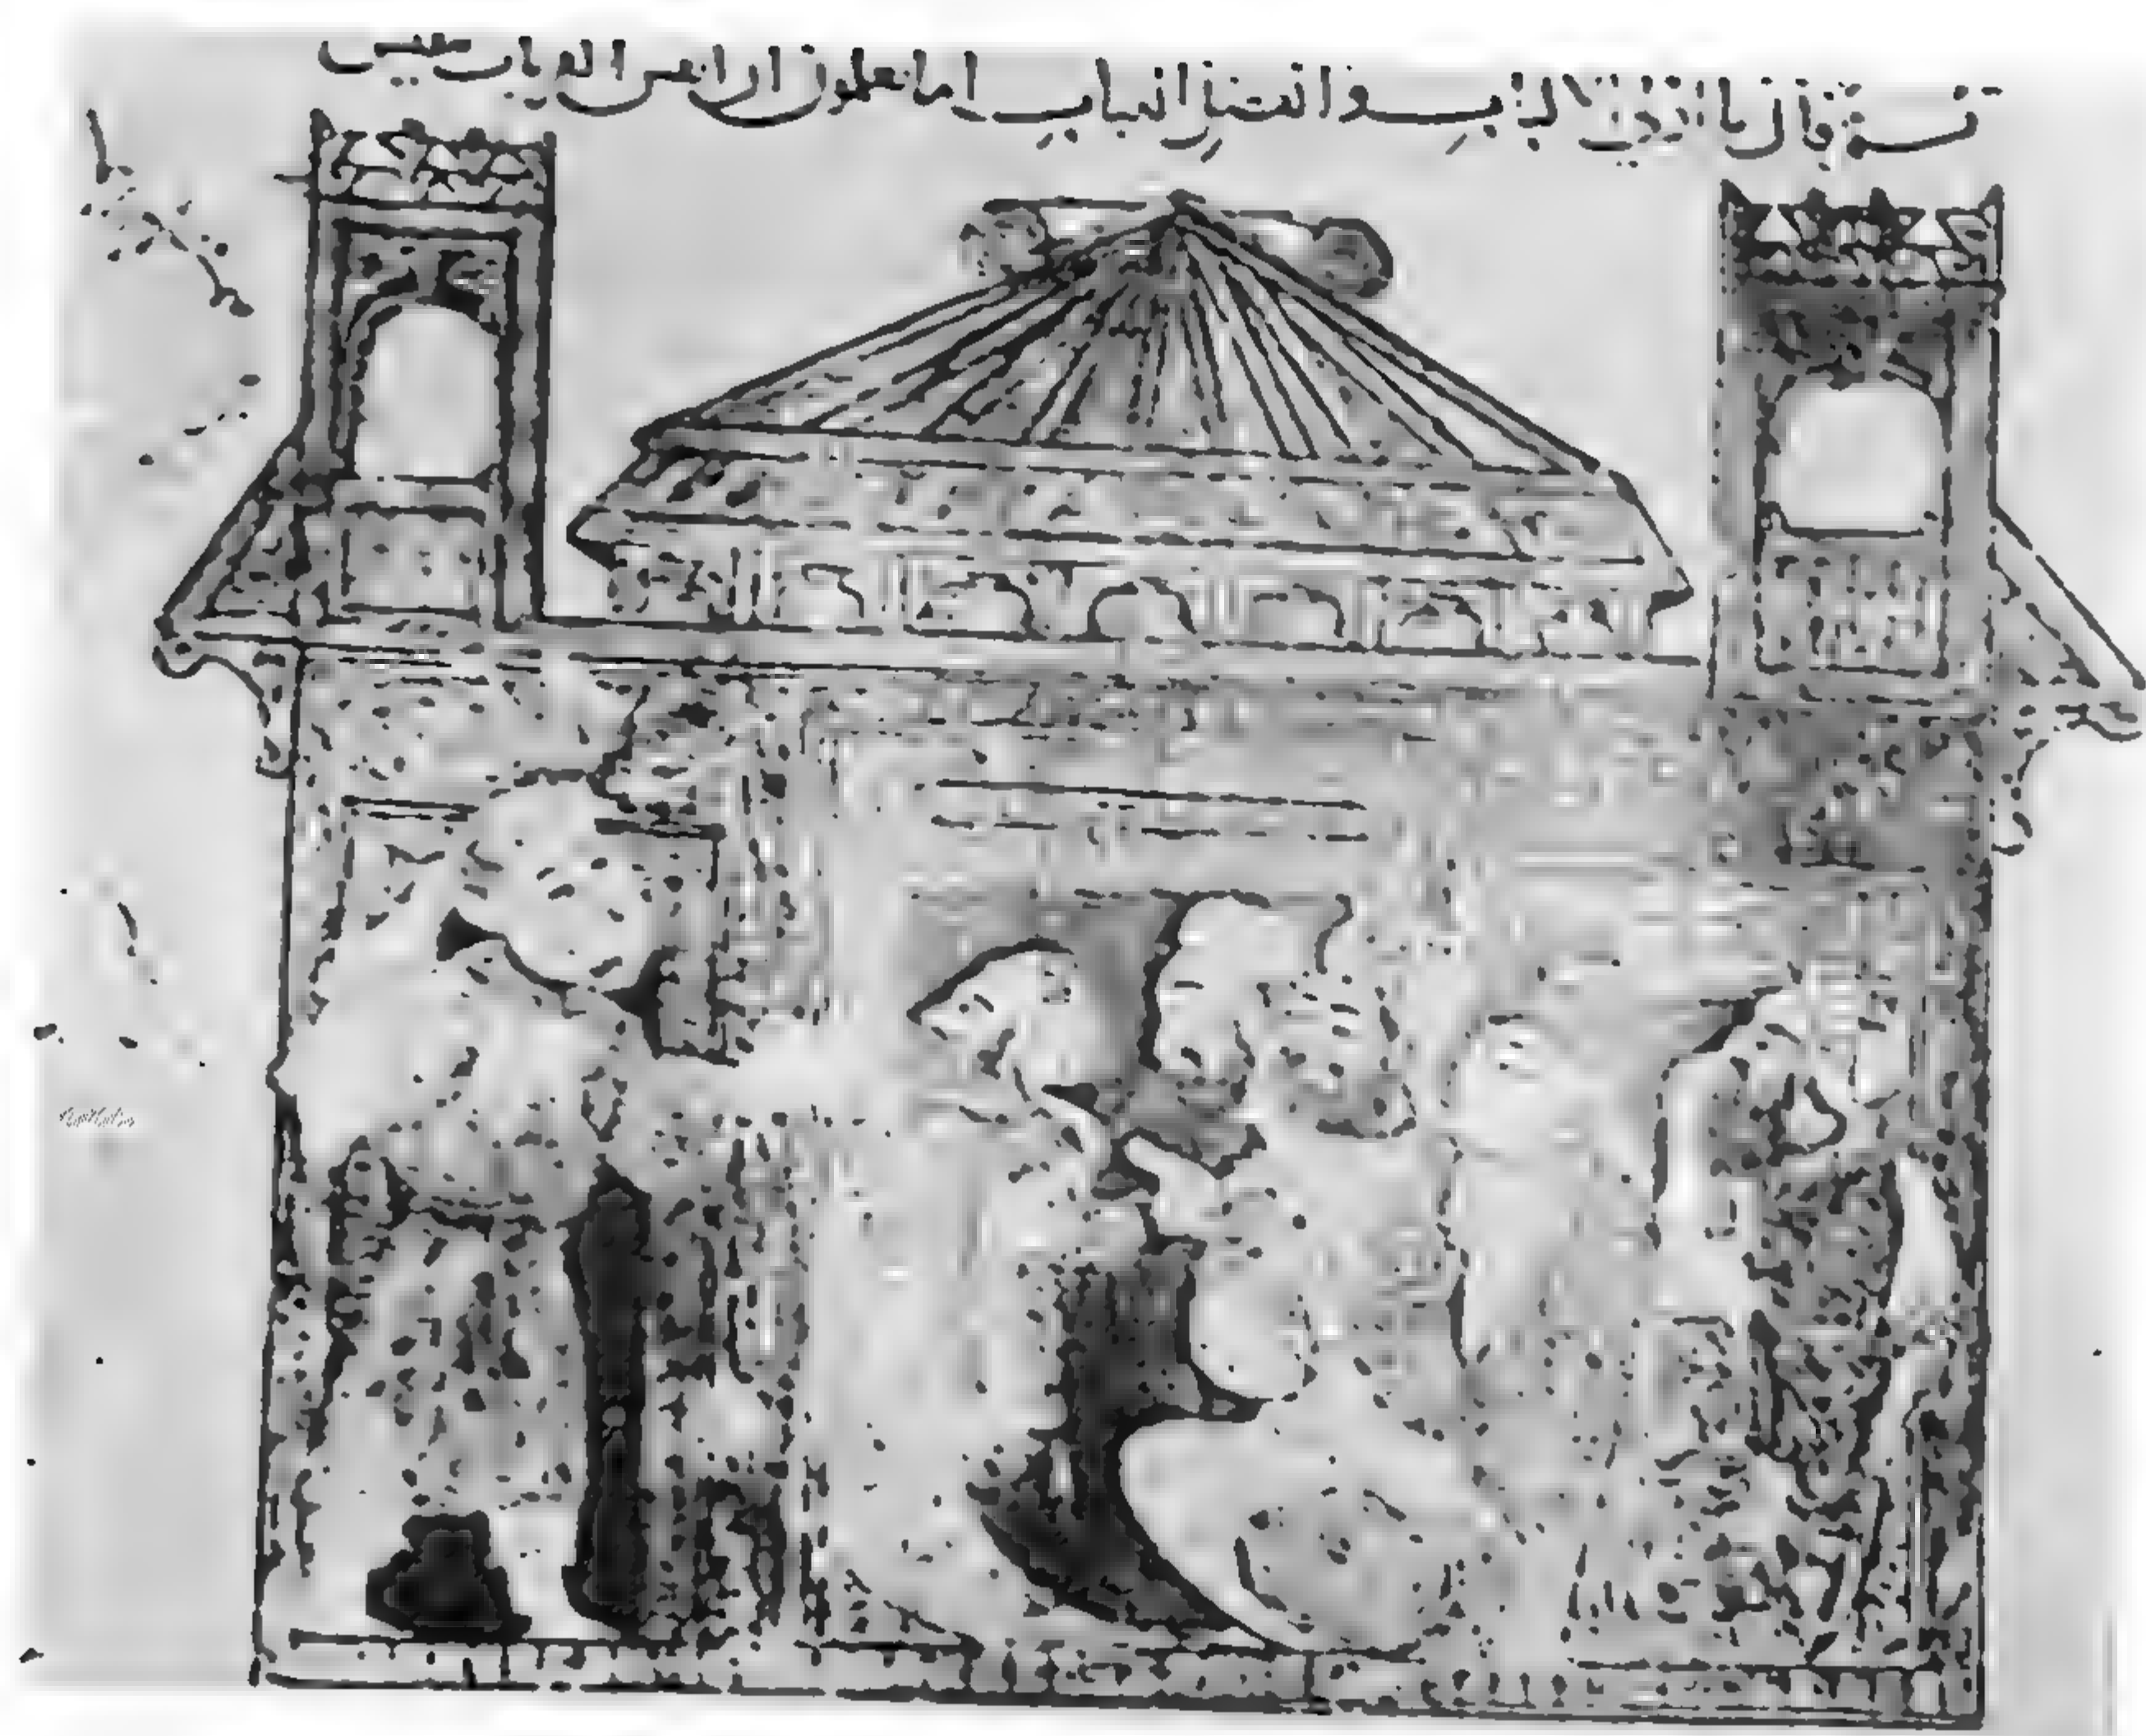 ثم قال يا اولي الالباب والفضل اللباب اما تعلمون ان انفس القربات تنفيس